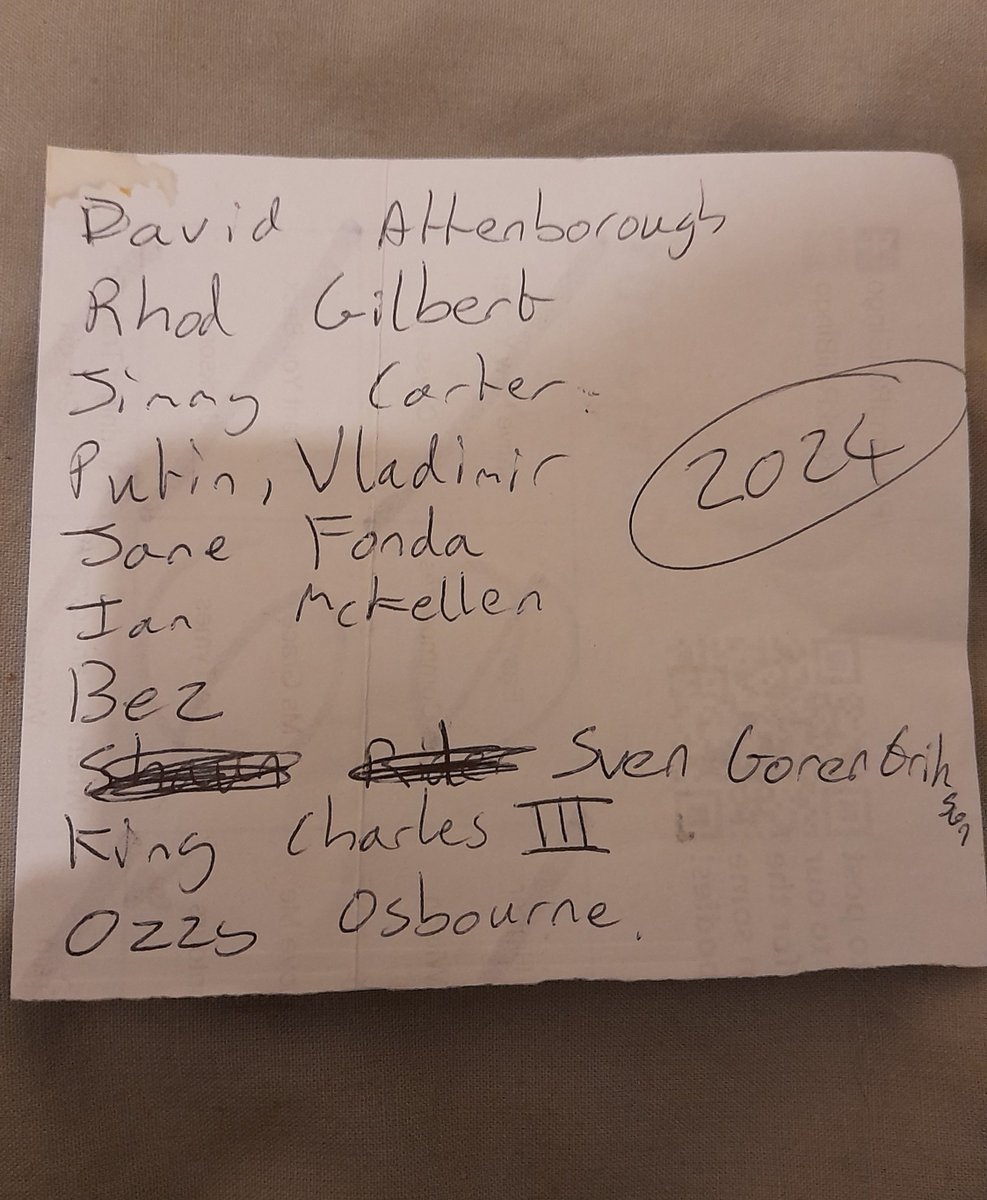 David Attenborough
Rhod Gilbert
Jimmy Carter
Putin, Vladimir
2024
Jane Fonda
Ian McKellen
Bez
Sven Goren Erikssen
King Charles III
Ozzy Osbourne.